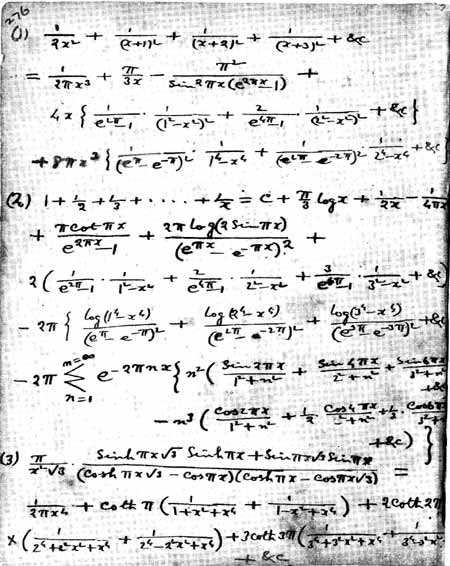 276
(1) 1/2x² + 1/(x+1)² + 1/(x+2)² + 1/(x+3)² + &c
= 1/2πx³ + π/3x − π²/Sin2πx(e^{2πx}−1) +
4x { 1/e^{2π}−1 · 1/(1²−x²)² + 2/e^{4π}−1 · 1/(2²−x²)² + &c }
+ 8πx³ { 1/(e^π−e^{−π})² · 1/1⁴−x⁴ + 1/(e^{2π}−e^{−2π})² · 1/2⁴−x⁴ + &c }
(2) 1 + 1/2 + 1/3 + · · · · + 1/x = C + π/3 log x + 1/2x − 1/4πx²
+ π cot πx/e^{2πx}−1 + 2π log(2 Sin πx)/(e^{πx}−e^{−πx})² +
2 ( 1/e^{2π}−1 · 1/1²−x² + 2/e^{4π}−1 · 1/2²−x² + 3/e^{6π}−1 · 1/3²−x² + &c )
− 2π { log(1⁴−x⁴)/(e^π−e^{−π})² + log(2⁴−x⁴)/(e^{2π}−e^{−2π})² + log(3⁴−x⁴)/(e^{3π}−e^{−3π})² + &c
− 2π Σ_{n=1}^{n=∞} e^{−2πnx} { n² ( Sin 2πx/1²+n² + Sin 4πx/2²+n² + Sin 6πx/3²+n² + &c
− n³ ( cos 2πx/1²+n² + 1/2 · cos 4πx/2²+n² + 1/3 · cos 6πx/3²+n² + &c ) }
(3) π/x²√3 · Sinh πx√3 Sinh πx + Sin πx√3 Sin πx/(cosh πx√3 − cos πx)(cosh πx − cos πx√3) =
1/2πx⁴ + coth π ( 1/1+x²+x⁴ + 1/1−x²+x⁴ ) + 2 coth 2π
× ( 1/2⁴+2²x²+x⁴ + 1/2⁴−2²x²+x⁴ ) + 3 coth 3π ( 1/3⁴+3²x²+x⁴ + 1/3⁴−3²x²
+ &c